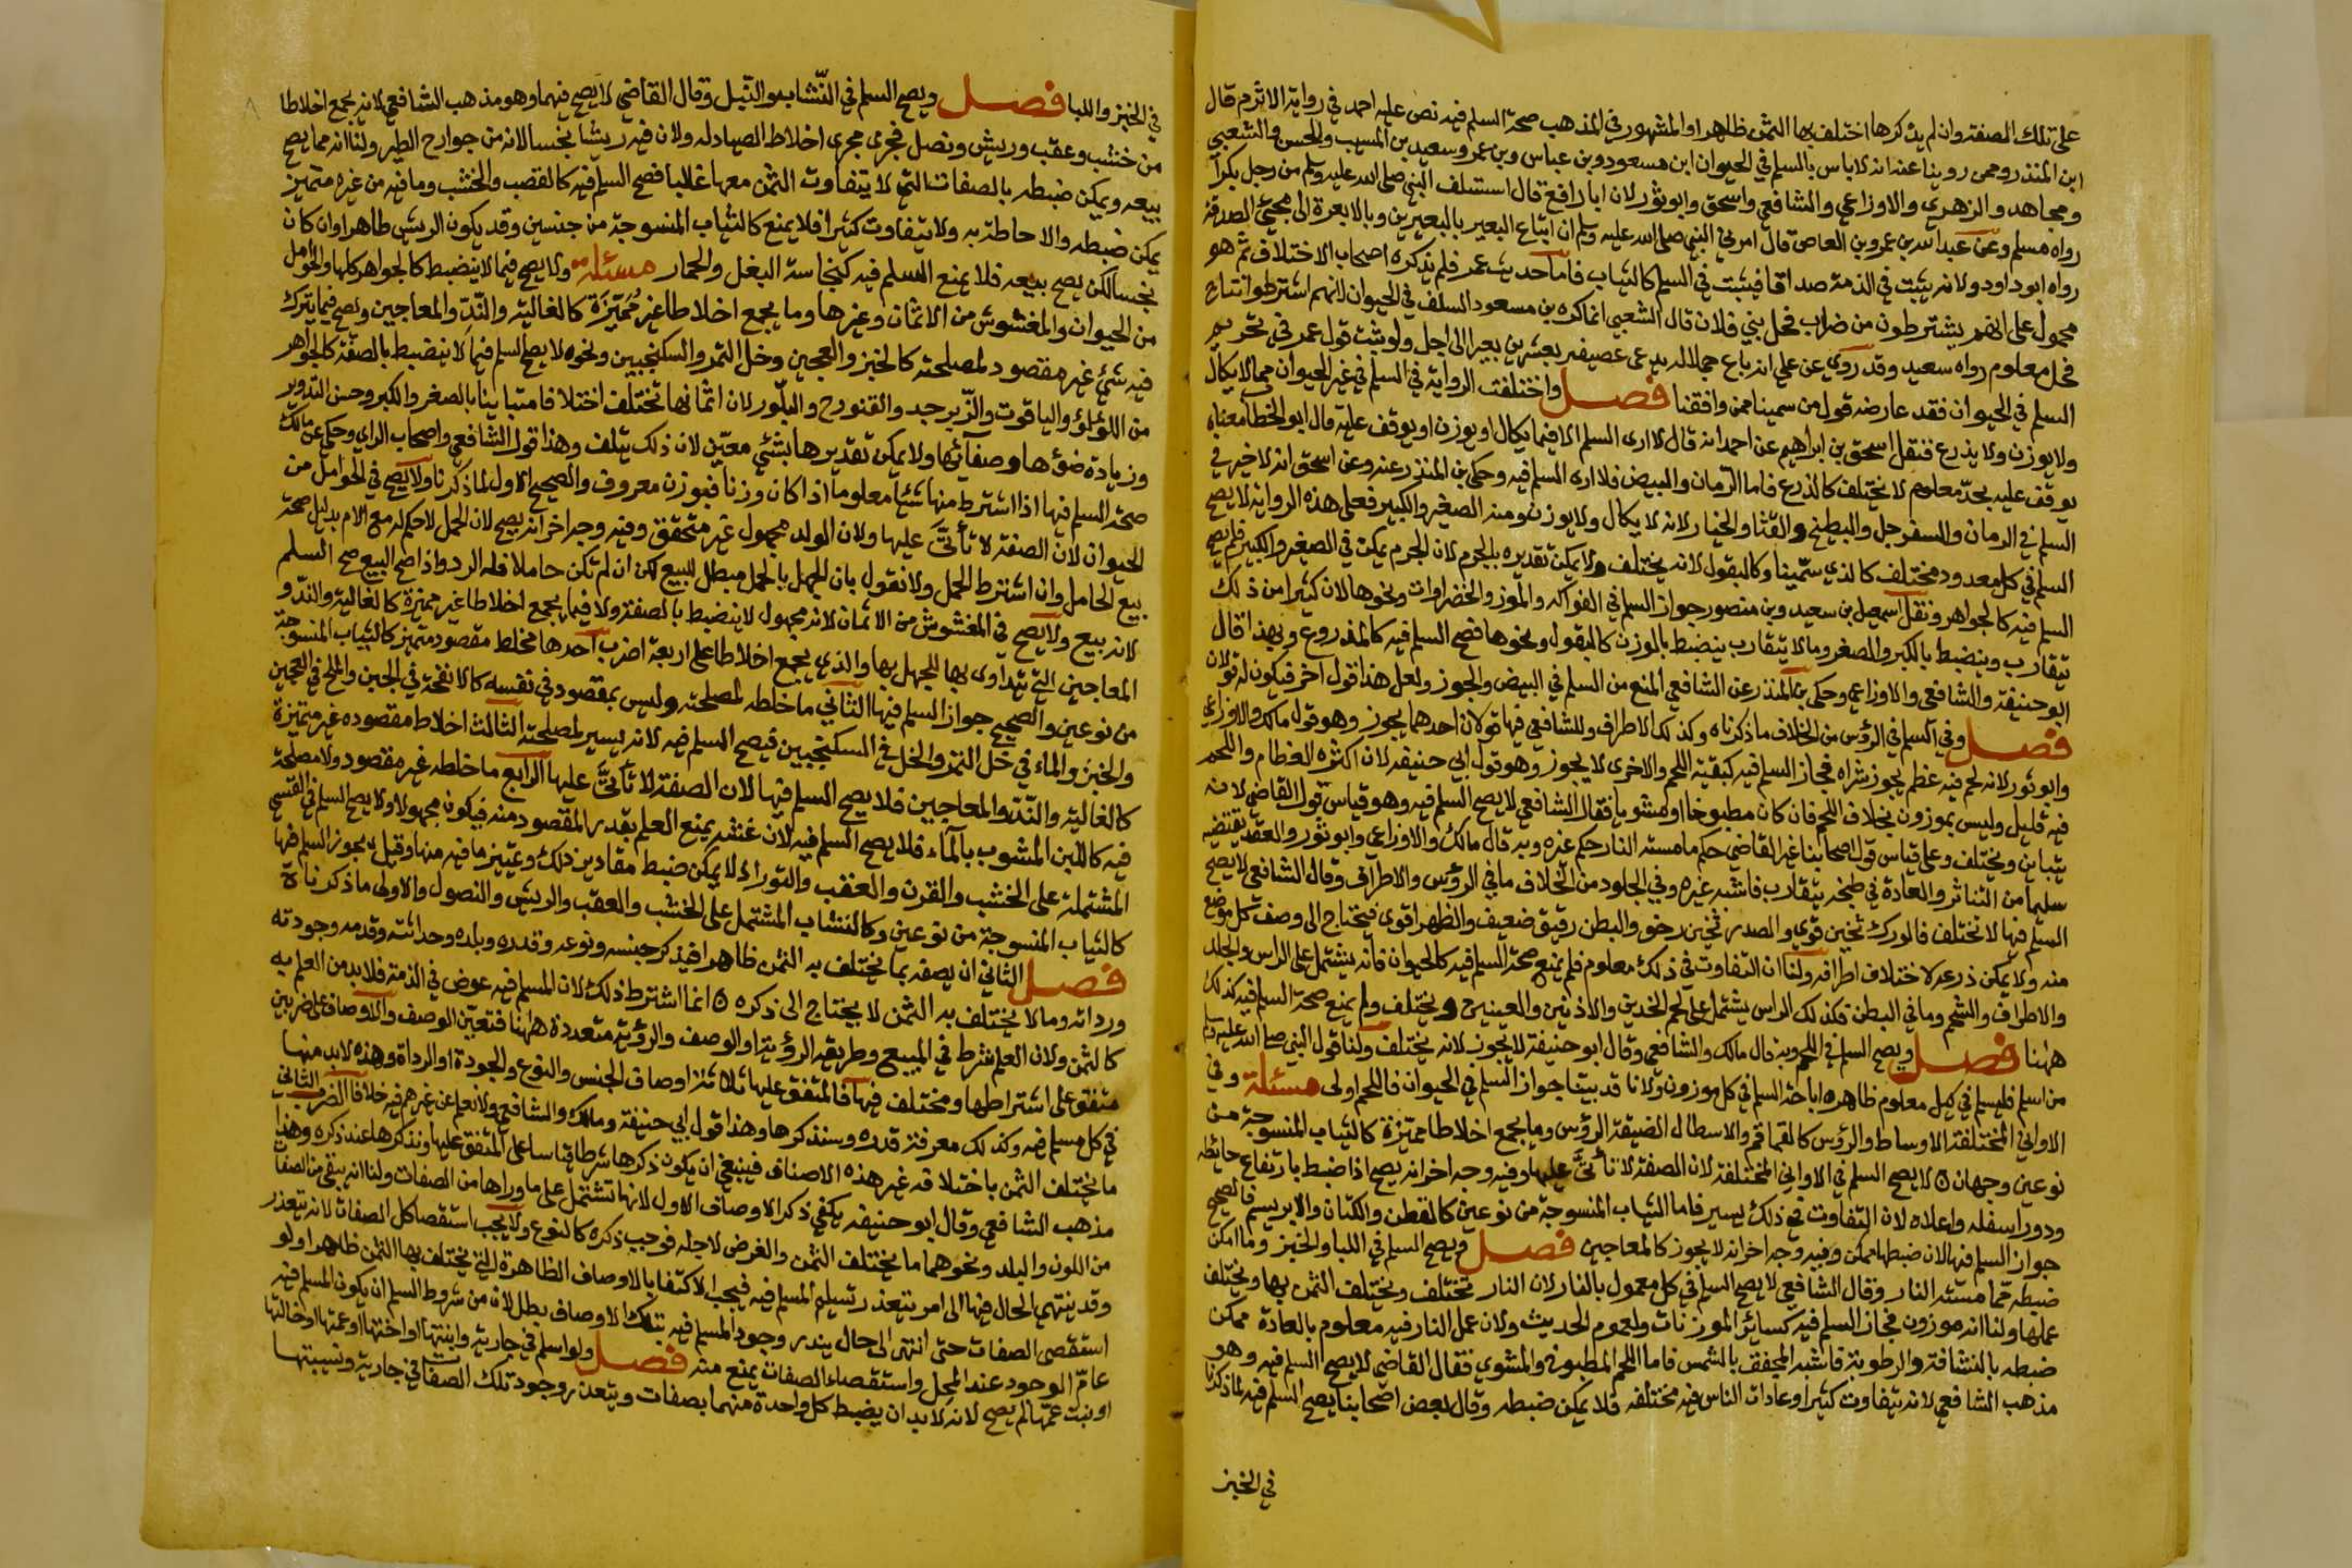 على تلك الصفة وان لم يذكرها اختلف بها الثمن ظاهرا والمشهور في المذهب صحة السلم فيه نص عليه احمد في رواية الاثرم قال
ابن المنذر وممن روينا عنه انه لا باس بالسلم في الحيوان ابن مسعود وبن عباس وبن عمر وسعيد بن المسيب والحسن والشعبي
ومجاهد والزهري والاوزاعي والشافعي واسحق وابو ثور لان ابا رافع قال استسلف النبي صلى الله عليه وسلم من رجل بكرا
رواه مسلم وعن عبد الله بن عمرو بن العاص قال امرني النبي صلى الله عليه وسلم ان ابتاع البعير بالبعيرين وبالابعرة الى مجيئ الصدقة
رواه ابو داود ولانه يثبت في الذمة صداقا فيثبت في السلم كالثياب فاما حديث عمر فلم يذكره اصحاب الاختلاف ثم هو
محمول على انهم يشترطون من ضراب فحل بني فلان قال الشعبي انما كره بن مسعود السلف في الحيوان لانهم اشترطوا نتاج
فحل معلوم رواه سعيد وقد روي عن علي انه باع جملا له يدعى عصيفير بعشرين بعيرا الى اجل ولو ثبت قول عمر في تحريم
السلم في الحيوان فقد عارضه قول من سمينا ممن وافقنا فصل واختلفت الرواية في السلم في غير الحيوان مما لا يكال
ولا يوزن ولا يذرع فنقل اسحق بن ابراهيم عن احمد انه قال لا ارى السلم الا فيما يكال او يوزن او يوقف عليه قال ابو الخطا معناه
يوقف عليه بحد معلوم لا يختلف كالذرع فاما الرمان والبيض فلا ارى السلم فيه وحكى بن المنذر عنه وعن اسحق انه لا خير في
السلم في الرمان والسفرجل والبطيخ والقثا والخيار لانه لا يكال ولا يوزن ومنه الصغير والكبير فعلى هذه الرواية لا يصح
السلم في كل معدود مختلف كالذي سمينا وكالبقول لانه يختلف ولا يمكن تقديره بالحزم لان الحزم يمكن في الصغير والكبير فلم يصح
السلم فيه كالجواهر ونقل اسمعيل بن سعيد وبن منصور جواز السلم في الفواكه والموز والخضراوات ونحوها لان كثيرا من ذلك
يتقارب وينضبط بالكبر والصغر وما لا يتقارب ينضبط بالوزن كالبقول ونحوها فصح السلم فيه كالمذروع وبهذا قال
ابو حنيفة والشافعي والاوزاعي وحكى بن المنذر عن الشافعي المنع من السلم في البيض والجوز ولعل هذا قول آخر فيكون له قولان
فصل وفي السلم في الرؤس من الخلاف ما ذكرناه وكذلك الاطراف وللشافعي فيها قولان احدهما يجوز وهو قول مالك والاوزاعي
وابو ثور لانه لحم فيه عظم يجوز شراه فجاز السلم فيه كبقية اللحم والاخرى لا يجوز وهو قول ابي حنيفة لان اكثره العظام واللحم
فيه قليل وليس بموزون بخلاف اللحم فان كان مطبوخا او مشويا فقال الشافعي لا يصح السلم فيه وهو قياس قول القاضي لانه
يتباين ويختلف وعلى قياس قول اصحابنا غير القاضي حكم ما مسته النار حكم غيره وبه قال مالك والاوزاعي وابو ثور والعقد يقتضيه
سليما من التناثر والعادة في طبخه يتقارب فاشبه غيره وفي الجلود من الخلاف ما في الرؤس والاطراف وقال الشافعي لا يصح
السلم فيها لانه يختلف فالورك ثخين قوي والصدر ثخين رخو والبطن رقيق ضعيف والظهر اقوى فيحتاج الى وصف كل موضع
منه ولا يمكن ذرعه لاختلاف اطرافه ولنا ان التفاوت في ذلك معلوم فلم يمنع صحة السلم فيه كالحيوان فانه يشتمل على الراس والجلد
والاطراف والشحم وما في البطن فكذلك الراس يشتمل على لحم الخدين والاذنين والعينين ويختلف ولم يمنع صحة السلم فيه كذلك
ههنا فصل ويصح السلم في اللحم وبه قال مالك والشافعي وقال ابو حنيفة لا يجوز لانه يختلف ولنا قول النبي صلى الله عليه وسلم
من اسلم فليسلم في كيل معلوم ظاهره اباحة السلم في كل موزون ولانا قد بينا جواز السلم في الحيوان فاللحم اولى مسئلة وفي
الاواني المختلفة الاوساط والرؤس كالقماقم والاسطال الضيقة الرؤس وما يجمع اخلاطا مميزة كالثياب المنسوجة من
نوعين وجهان لا يصح السلم في الاواني المختلفة لان الصفة لا تأتي عليها وفيه وجه اخر انه يصح اذا ضبط بارتفاع حائطه
ودور اسفله واعلاه لان التفاوت في ذلك يسير فاما الثياب المنسوجة من نوعين كالقطن والكتان والابريسم فالصحيح
جواز السلم فيها لان ضبطها ممكن وفيه وجه اخر انه لا يجوز كالمعاجين فصل ويصح السلم في اللبا والخبز وما امكن
ضبطه مما مسته النار وقال الشافعي لا يصح السلم في كل معمول بالنار لان النار تختلف ويختلف الثمن بها ويختلف
عملها ولنا انه موزون فجاز السلم فيه كسائر الموزونات ولعموم الحديث ولان عمل النار فيه معلوم بالعادة ممكن
ضبطه بالنشافة والرطوبة فاشبه المجفف بالشمس فاما اللحم المطبوخ والمشوي فقال القاضي لا يصح السلم فيه وهو
مذهب الشافعي لانه يتفاوت كثيرا وعادات الناس فيه مختلفة فلا يمكن ضبطه وقال بعض اصحابنا يصح السلم فيه لما ذكرنا
في الخبز
في الخبز واللبا فصل ويصح السلم في النشاب والنبل وقال القاضي لا يصح فيهما وهو مذهب الشافعي لانه يجمع اخلاطا
من خشب وعقب وريش ونصل فجرى مجرى اخلاط الصيادله ولان فيه ريشا نجسا لانه من جوارح الطير ولنا انه مما يصح
بيعه ويمكن ضبطه بالصفات التي لا يتفاوت الثمن معها غالبا فصح السلم فيه كالقصب والخشب وما فيه من غيره متميز
يمكن ضبطه والاحاطة به ولا يتفاوت كثيرا فلا يمنع كالثياب المنسوجة من جنسين وقد يكون الريش طاهرا وان كان
نجسا لكن يصح بيعه فلا يمنع السلم فيه كنجاسة البغل والحمار مسئلة ولا يصح فيما لا ينضبط كالجواهر كلها والحوامل
من الحيوان والمغشوش من الاثمان وغيرها وما يجمع اخلاطا غير مميزة كالغالية والند والمعاجين ويصح فيما يترك
فيه شئ غير مقصود لمصلحته كالخبز والعجين وخل التمر والسكنجبين ونحوه لا يصح السلم فيما لا ينضبط بالصفة كالجواهر
من اللؤلؤ والياقوت والزبرجد والفنورح والبلور لان اثمانها تختلف اختلافا متباينا بالصغر والكبر وحسن التدوير
وزيادة ضؤها وصفائها ولا يمكن تقديرها بشئ معين لان ذلك يتلف وهذا قول الشافعي واصحاب الراي وحكي عن مالك
صحة السلم فيها اذا اشترط منها شئا معلوما اذا كان وزنا فبوزن معروف والصحيح الاول لما ذكرنا ولا يصح في الحوامل من
الحيوان لان الصفة لا تأتي عليها ولان الولد مجهول غير متحقق وفيه وجه اخر انه يصح لان الحمل لا حكم له مع الام بدليل صحة
بيع الحامل وان اشترط الحمل ولا نقول بان الجهل بالحمل مبطل للبيع لكن ان لم تكن حاملا فله الرد واذا صح البيع صح السلم
لانه بيع ولا يصح في المغشوش من الاثمان لانه مجهول لا ينضبط بالصفة ولا فيما يجمع اخلاطا غير مميزة كالغالية والند و
المعاجين التي يتداوى بها للجهل بها والذي يجمع اخلاطا على اربعة اضرب احدها مختلط مقصود متميز كالثياب المنسوجة
من نوعين والصحيح جواز السلم فيها الثاني ما خلطه لمصلحته وليس بمقصود في نفسه كالانفحة في الجبن والملح في العجين
والخبز والماء في خل التمر والخل في السكنجبين فيصح السلم فيه لانه يسير لمصلحته الثالث اخلاط مقصوده غير متميزة
كالغالية والند والمعاجين فلا يصح السلم فيها لان الصفة لا تأتي عليها الرابع ما خلطه غير مقصود ولا مصلحة
فيه كاللبن المشوب بالماء فلا يصح السلم فيه لان غشه يمنع العلم بقدر المقصود منه فيكون مجهولا ولا يصح السلم في القسي
المشتملة على الخشب والقرن والعقب والتوراء لا يمكن ضبط مقادير ذلك وتمييز ما فيه منها وقيل يجوز السلم فيها
كالثياب المنسوجة من نوعين وكالنشاب المشتمل على الخشب والعقب والريش والنصول والاولى ما ذكرناه
فصل الثاني ان يصفه بما يختلف به الثمن ظاهرا فيذكر جنسه ونوعه وقدره وبلده وحداثته وقدمه وجودته
ورداته وما لا يختلف به الثمن لا يحتاج الى ذكره انما اشترط ذلك لان المسلم فيه عوض في الذمة فلا بد من العلم به
كالثمن ولان العلم شرط في المبيع وطريقه الرؤية او الوصف والرؤية متعذرة ههنا فتعين الوصف والاوصاف على ضربين
متفق على اشتراطها ومختلف فيها فالمتفق عليها ثلاثة اوصاف الجنس والنوع والجودة او الرداة وهذه لا بد منها
في كل مسلم فيه وكذلك معرفة قدره وسنذكرها وهذا قول ابي حنيفة ومالك والشافعي ولا نعلم عن غيرهم فيه خلافا الضرب الثاني
ما يختلف الثمن باختلافه غير هذه الاصناف فينبغي ان يكون ذكرها شرطا قياسا على المتفق عليها ونذكرها عند ذكره وهذا
مذهب الشافعي وقال ابو حنيفة يكفي ذكر الاوصاف الاول لانها تشتمل على ما وراها من الصفات ولنا انه يبقى من الصفات
من اللون والبلد ونحوهما ما يختلف الثمن والغرض لاجله فوجب ذكره كالنوع ولا يجب استقصا كل الصفات لانه يتعذر
وقد ينتهي الحال فيها الى امر يتعذر تسليم المسلم فيه فيجب الاكتفا بالاوصاف الظاهرة التي يختلف بها الثمن ظاهرا ولو
استقصى الصفات حتى انتهى الى حال يندر وجود المسلم فيه بتلك الاوصاف بطل لان من شروط السلم ان يكون المسلم فيه
عام الوجود عند المحل واستقصاء الصفات يمنع منه فصل ولو اسلم في جارية وابنتها او اختها او عمتها او خالتها
او بنت عمها لم يصح لانه لا بد ان يضبط كل واحدة منهما بصفات ويتعذر وجود تلك الصفات في جارية ونسيبتها